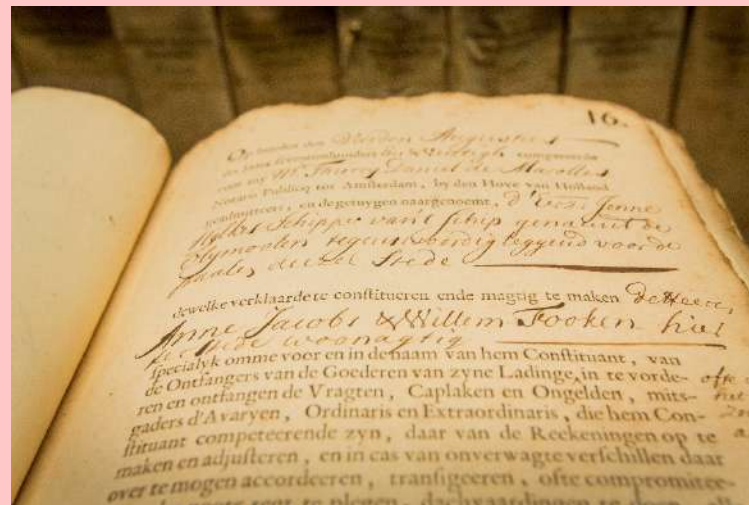 16.
Op heden den Vierden Augustus
den Jaare seventienhonderd twintigh compareerde
voor my Mr. Daniel de Marolles
Notaris Publicq tot Amsterdam, by den Hove van Holland
geadmitteert, en de getuygen naargenoemt, d'Eers. Jenne
Schipper van't Schip genaamt de
tegenwoordig leggend voor de
paalen deezer Stede
dewelke verklaarde te conſtitueren ende magtig te maken de Heeren
Anne Jacobs & Willem Fooken hier
ter Stede woonagtig
ſpecialyk omme voor en in de naam van hem Conſtituant, van
de Ontfangers van de Goederen van zyne Ladinge, in te vorde-
ren en ontfangen de Vragten, Caplaken en Ongelden, mits-
gaders d'Avaryen, Ordinaris en Extraordinaris, die hem Con-
ſtituant competeerende zyn, daar van de Reekeningen op te
maken en adjuſteren, en in cas van onverwagte verſchillen daar
over te mogen accordeeren, tranſigeeren, ofte compromittee-
te plegen, dachvaardingen te doen